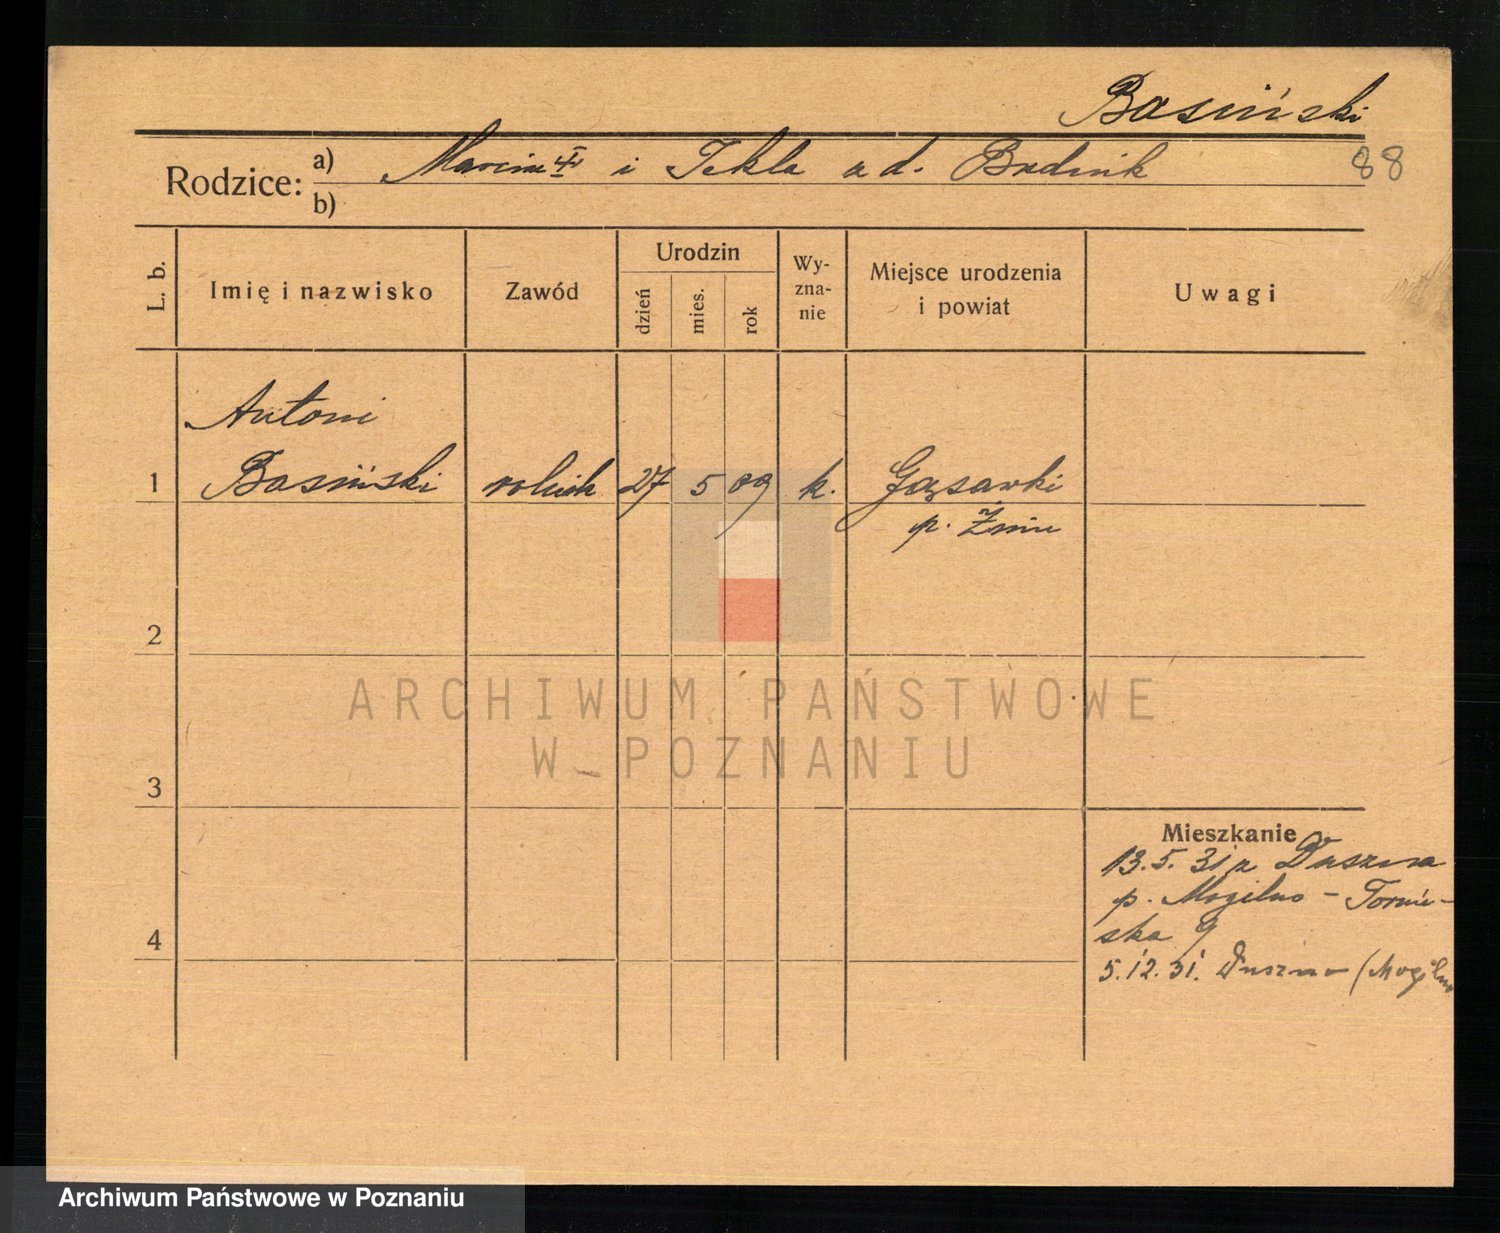 Basiński
Rodzice: a) Marcin i Tekla ad. Budnik
88
b)
L. b. Imię i nazwisko Zawód Urodzin dzień mies. rok Wy-zna-nie Miejsce urodzenia i powiat Uwagi
Antoni
1 Basiński rolnik 27 5 09 k. Gąsawki
p. Żnin
2
ARCHIWUM PAŃSTWOWE
W POZNANIU
3
Mieszkanie
13.5.31 Duszna
p. Mogilno -
ska 9
4
5.12.31. Duszno (Mogilno
Archiwum Państwowe w Poznaniu